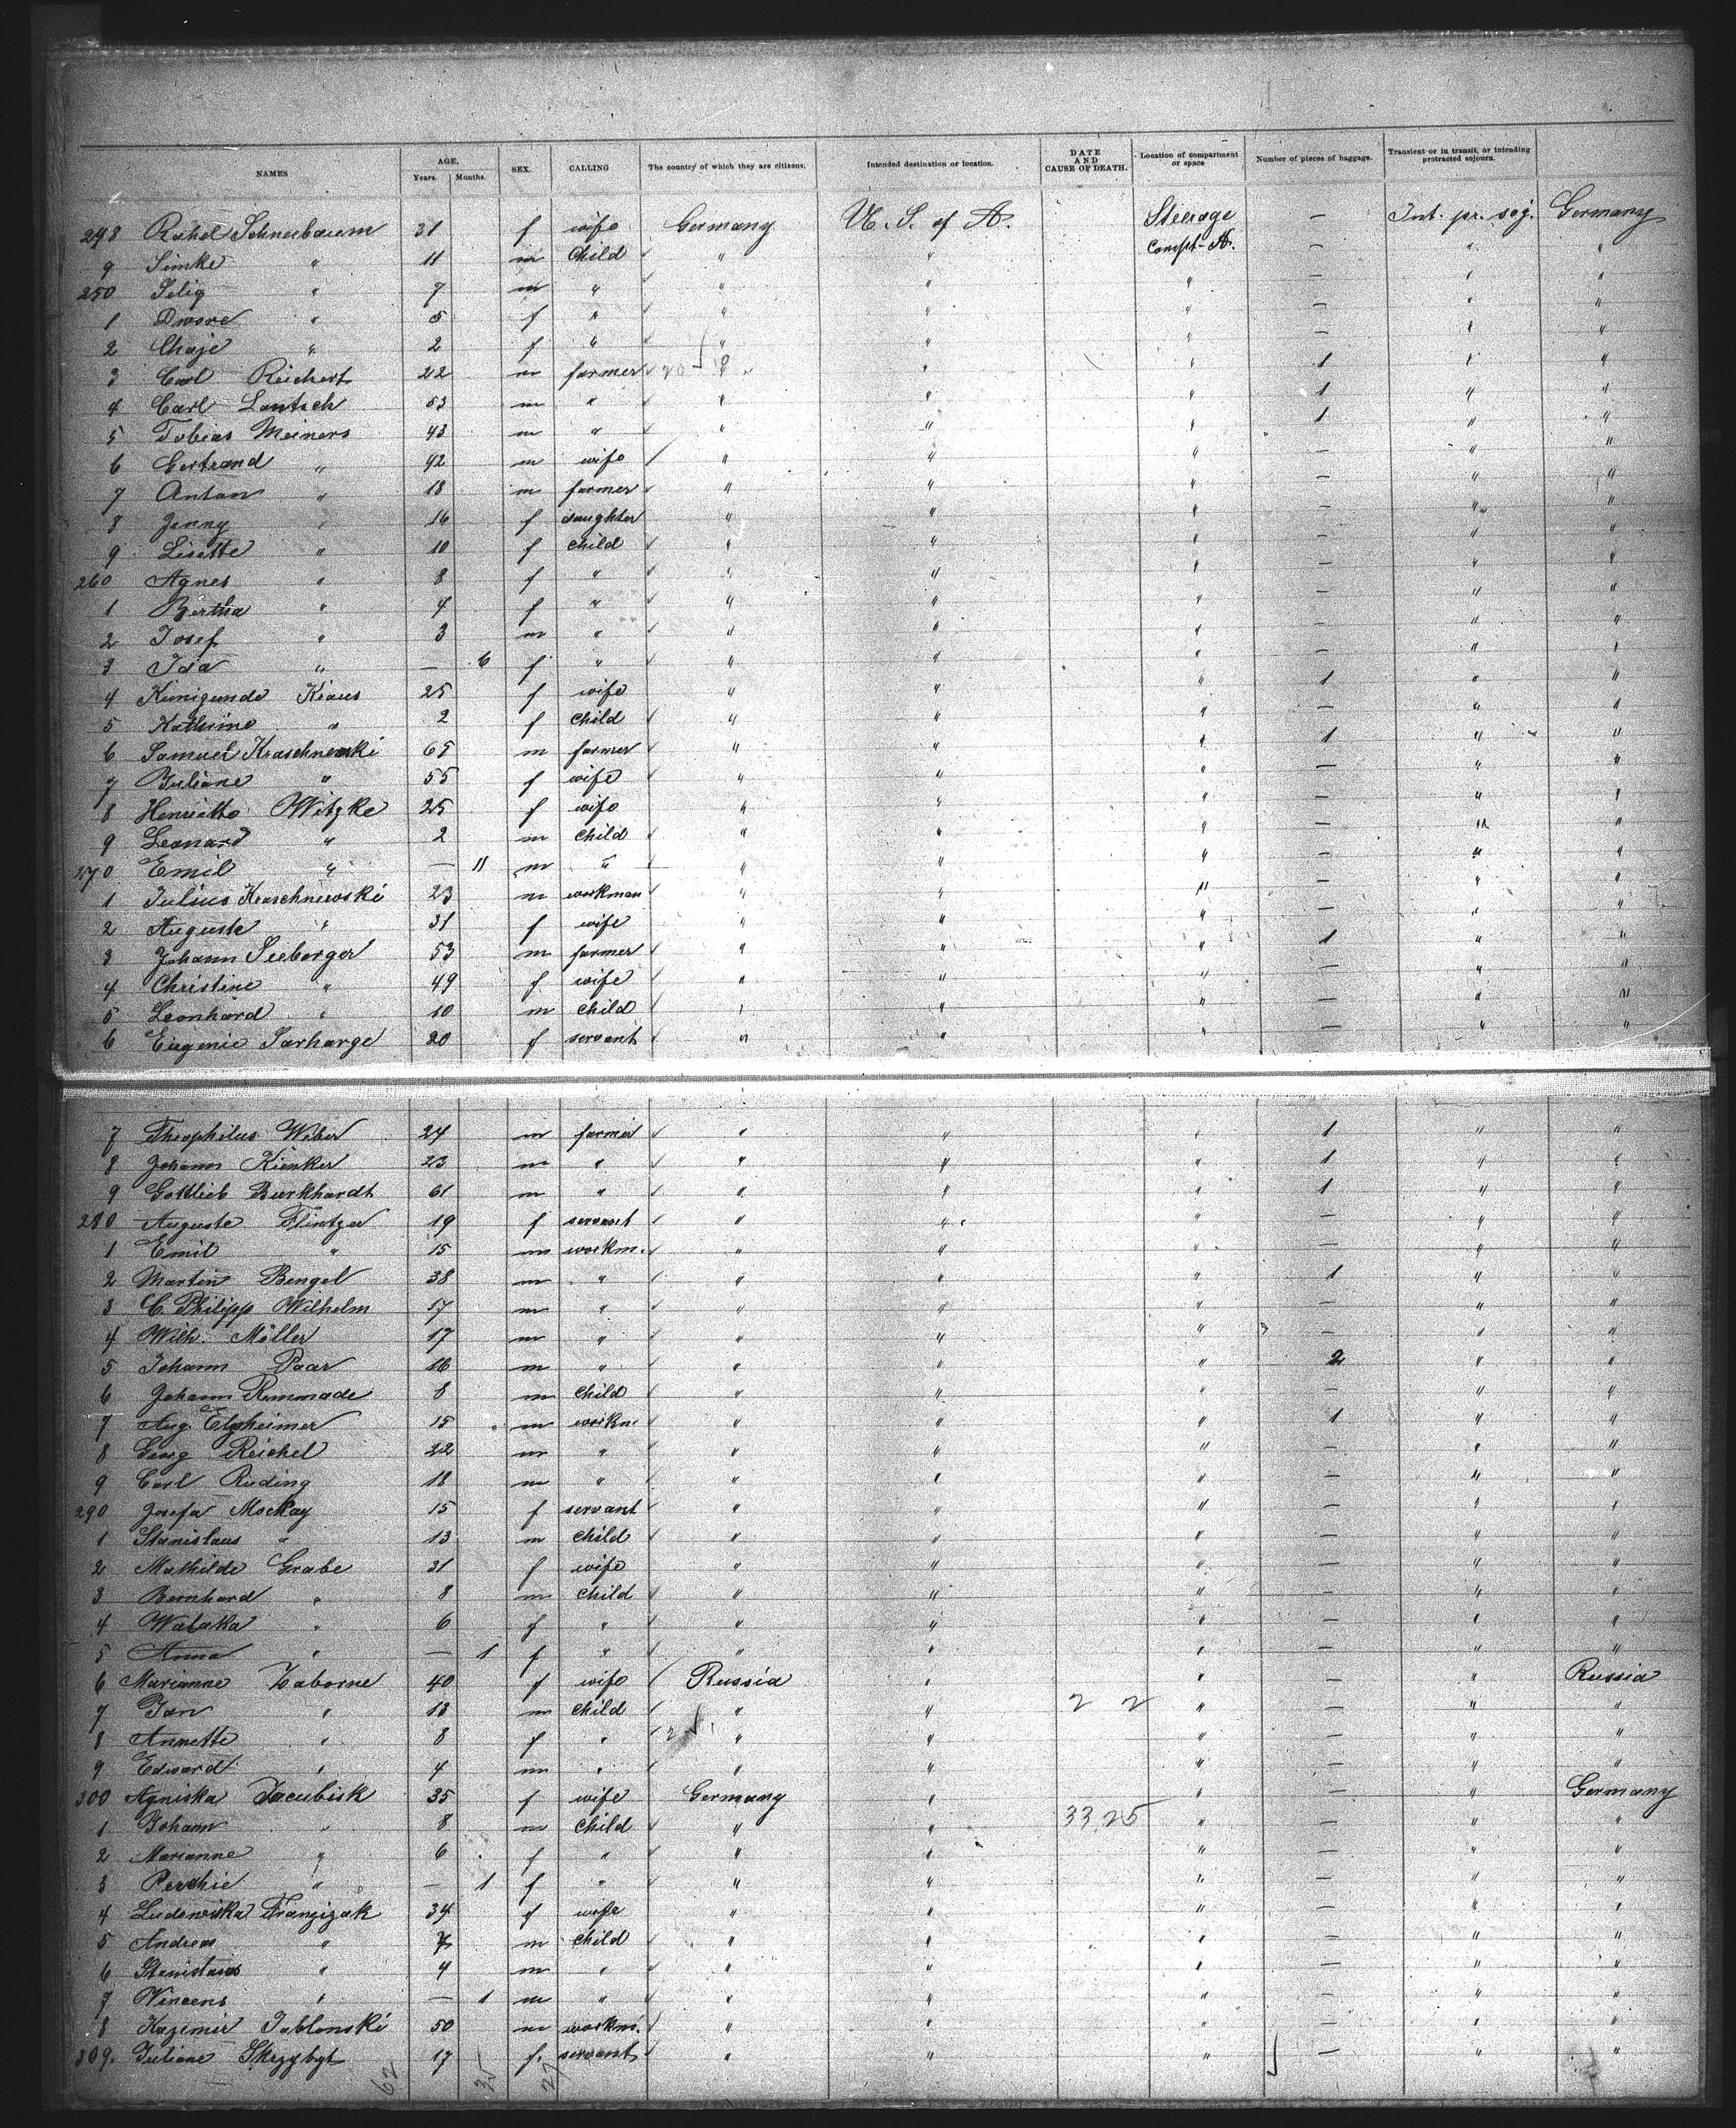 NAMES AGE. Years. Months. SEX. CALLING The country of which they are citizens. Intended destination or location. DATE AND CAUSE OF DEATH. Location of compartment or space Number of pieces of baggage. Transient or in transit, or intending protracted sojourn.
248 Rahel Schneebaum 31 f wife Germany U. S. of A. Steerage Compt. A. — Int. pr. soj. Germany
9 Simke " 11 m Child " " — " "
250 Selig " 7 m " " " " — " "
1 Dwore " 5 f " " " " — " "
2 Chaje " 2 f " " " " — " "
3 Carl Reichert 22 m farmer " " " 1 " "
4 Carl Lantsch 53 m " " " " 1 " "
5 Tobias Meiners 43 m " " " " 1 " "
6 Gertrand " 42 m wife " " " — " "
7 Anton " 18 m farmer " " " — " "
8 Jenny " 16 f daughter " " " — " "
9 Lisette " 10 f child " " " — " "
260 Agnes " 8 f " " " " — " "
1 Bertha " 4 f " " " " — " "
2 Josef " 3 m " " " " — " "
3 Ida " — 6 f " " " " — " "
4 Kunigunde Kraus 25 f wife " " " 1 " "
5 Kathrine " 2 f child " " " — " "
6 Samuel Kraschnewski 65 m farmer " " " 1 " "
7 Juliane " 55 f wife " " " — " "
8 Henriette Witzke 25 f wife " " " — " "
9 Leonard " 2 m child " " " — " "
270 Emil " — 11 m " " " " — " "
1 Julius Kraschniewski 23 m workman " " " — " "
2 Auguste " 31 f wife " " " — " "
3 Johann Seeberger 53 m farmer " " " 1 " "
4 Christine " 49 f wife " " " — " "
5 Leonhard " 10 m child " " " — " "
6 Eugenie Sarharge 20 f servant " " " — " "
7 Theophilus Weber 24 m farmer " " " 1 " "
8 Johann Kienker 23 m " " " " 1 " "
9 Gottlieb Burkhardt 61 m " " " " 1 " "
280 Auguste Flintzer 19 f servant " " " — " "
1 Emil " 15 m workm. " " " — " "
2 Martin Bengel 38 m " " " " 1 " "
3 C. Philipp Wilhelm 17 m " " " " — " "
4 Wilh. Möller 17 m " " " " — " "
5 Johann Paar 16 m " " " " 2 " "
6 Johann Rummade 8 m child " " " — " "
7 Aug. Elzheimer 15 m workm. " " " 1 " "
8 Georg Reichel 22 m " " " " — " "
9 Carl Rüding 18 m " " " " — " "
290 Josefa Mockay 15 f servant " " " — " "
1 Stanislaus " 13 m child " " " — " "
2 Mathilde Grabe 31 f wife " " " — " "
3 Bernhard " 8 m child " " " — " "
4 Walaka " 6 f " " " " — " "
5 Anna " — 1 f " " " " — " "
6 Marianne Zaborne 40 f wife Russia " " — " Russia
7 Jan " 13 m child " " 2 2 " — " "
8 Annette " 8 f " " " " — " "
9 Edward " 4 m " " " " — " "
300 Agniska Jacubisk 35 f wife Germany " " — " Germany
1 Johann " 8 m child " " 33 25 " — " "
2 Marianne " 6 f " " " " — " "
3 Perchie " — 1 f " " " " — " "
4 Ludowika Franzizak 34 f wife " " " — " "
5 Andreas " 7 m child " " " — " "
6 Stanislaus " 4 m " " " " — " "
7 Wincens " — 1 m " " " " — " "
8 Kazimir Jablonski 50 m workm. " " " — " "
309. Juliane Skrzybgt 17 f. servant " " " — " "
62 35 27